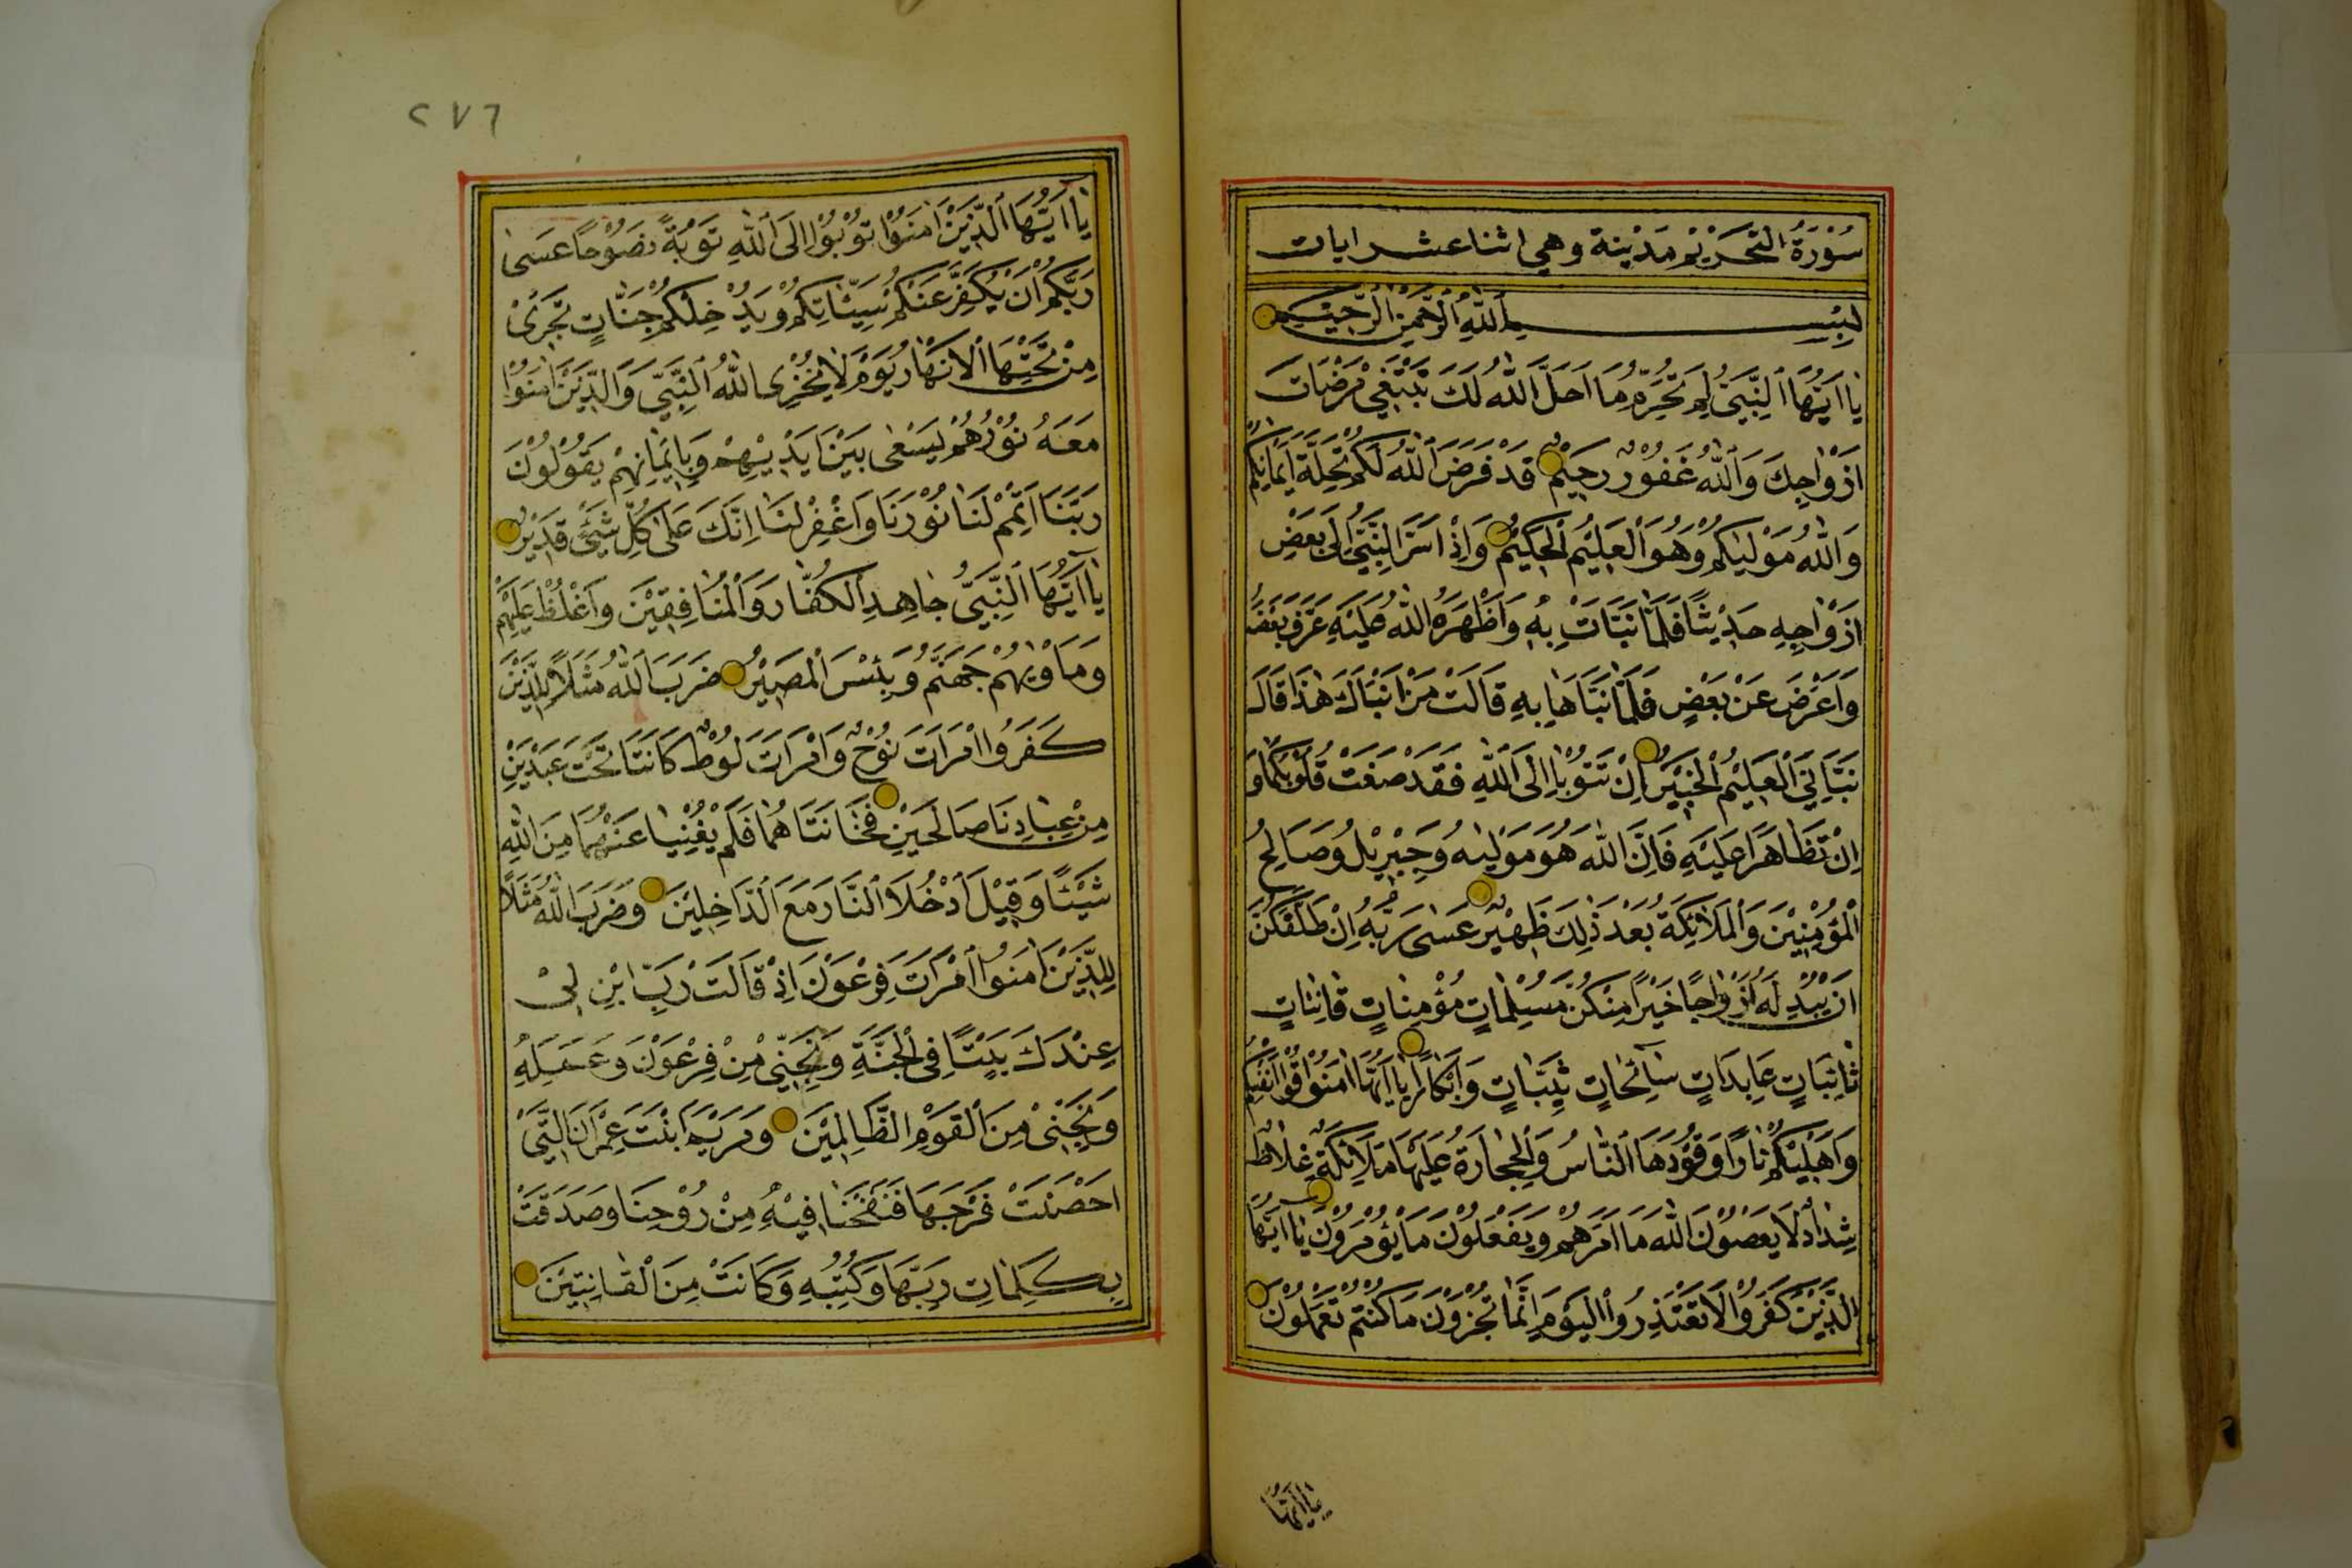 سُوْرَةُ التَّحْرِيْمِ مَدْنِيَة وهي اثنا عشر ايات
بِسْمِ اللّٰهِ الرَّحْمٰنِ الرَّحِيْمِ
يَا اَيُّهَا النَّبِيُّ لِمَ تُحَرِّمُ مَا اَحَلَّ اللّٰهُ لَكَ تَبْتَغِيْ مَرْضَاتَ
اَزْوَاجِكَ وَاللّٰهُ غَفُوْرٌ رَحِيْمٌ قَدْ فَرَضَ اللّٰهُ لَكُمْ تَحِلَّةَ اَيْمَانِكُمْ
وَاللّٰهُ مَوْلٰيكُمْ وَهُوَ الْعَلِيْمُ الْحَكِيْمُ وَاِذْ اَسَرَّ النَّبِيُّ اِلٰى بَعْضِ
اَزْوَاجِهِ حَدِيْثًا فَلَمَّا نَبَّاَتْ بِهِ وَاَظْهَرَهُ اللّٰهُ عَلَيْهِ عَرَّفَ بَعْضَهُ
وَاَعْرَضَ عَنْ بَعْضٍ فَلَمَّا نَبَّاَهَا بِهِ قَالَتْ مَنْ اَنْبَاَكَ هٰذَا قَالَ
نَبَّاَنِيَ الْعَلِيْمُ الْخَبِيْرُ اِنْ تَتُوْبَا اِلَى اللّٰهِ فَقَدْ صَغَتْ قُلُوْبُكُمَا وَ
اِنْ تَظَاهَرَا عَلَيْهِ فَاِنَّ اللّٰهَ هُوَ مَوْلٰيهُ وَجِبْرِيْلُ وَصَالِحُ
الْمُؤْمِنِيْنَ وَالْمَلَائِكَةُ بَعْدَ ذٰلِكَ ظَهِيْرٌ عَسٰى رَبُّهُ اِنْ طَلَّقَكُنَّ
اَنْ يُبْدِلَهُ اَزْوَاجًا خَيْرًا مِنْكُنَّ مُسْلِمَاتٍ مُؤْمِنَاتٍ قَانِتَاتٍ
تَائِبَاتٍ عَابِدَاتٍ سَائِحَاتٍ ثَيِّبَاتٍ وَاَبْكَارًا يَا اَيُّهَا اٰمَنُوْا قُوْا اَنْفُسَكُمْ
وَاَهْلِيْكُمْ نَارًا وَقُوْدُهَا النَّاسُ وَالْحِجَارَةُ عَلَيْهَا مَلَائِكَةٌ غِلَاظٌ
شِدَادٌ لَا يَعْصُوْنَ اللّٰهَ مَا اَمَرَهُمْ وَيَفْعَلُوْنَ مَا يُؤْمَرُوْنَ يَا اَيُّهَا
الَّذِيْنَ كَفَرُوْا لَا تَعْتَذِرُوا الْيَوْمَ اِنَّمَا تُجْزَوْنَ مَا كُنْتُمْ تَعْمَلُوْنَ
يا ايها
٢٧٦
يَا اَيُّهَا الَّذِيْنَ اٰمَنُوْا تُوْبُوْا اِلَى اللّٰهِ تَوْبَةً نَصُوْحًا عَسٰى
رَبُّكُمْ اَنْ يُكَفِّرَ عَنْكُمْ سَيِّئَاتِكُمْ وَيُدْخِلَكُمْ جَنَّاتٍ تَجْرِيْ
مِنْ تَحْتِهَا الْاَنْهَارُ يَوْمَ لَا يُخْزِى اللّٰهُ النَّبِيَّ وَالَّذِيْنَ اٰمَنُوْا
مَعَهُ نُوْرُهُمْ يَسْعٰى بَيْنَ اَيْدِيْهِمْ وَبِاَيْمَانِهِمْ يَقُوْلُوْنَ
رَبَّنَا اَتْمِمْ لَنَا نُوْرَنَا وَاغْفِرْ لَنَا اِنَّكَ عَلٰى كُلِّ شَيْئٍ قَدِيْرٌ
يَا اَيُّهَا النَّبِيُّ جَاهِدِ الْكُفَّارَ وَالْمُنَافِقِيْنَ وَاغْلُظْ عَلَيْهِمْ
وَمَاْوٰيهُمْ جَهَنَّمُ وَبِئْسَ الْمَصِيْرُ ضَرَبَ اللّٰهُ مَثَلًا لِلَّذِيْنَ
كَفَرُوا امْرَاَتَ نُوْحٍ وَامْرَاَتَ لُوْطٍ كَانَتَا تَحْتَ عَبْدَيْنِ
مِنْ عِبَادِنَا صَالِحَيْنِ فَخَانَتَاهُمَا فَلَمْ يُغْنِيَا عَنْهُمَا مِنَ اللّٰهِ
شَيْئًا وَقِيْلَ ادْخُلَا النَّارَ مَعَ الدَّاخِلِيْنَ وَضَرَبَ اللّٰهُ مَثَلًا
لِلَّذِيْنَ اٰمَنُوا امْرَاَتَ فِرْعَوْنَ اِذْ قَالَتْ رَبِّ ابْنِ لِيْ
عِنْدَكَ بَيْتًا فِى الْجَنَّةِ وَنَجِّنِيْ مِنْ فِرْعَوْنَ وَعَمَلِهِ
وَنَجِّنِيْ مِنَ الْقَوْمِ الظَّالِمِيْنَ وَمَرْيَمَ ابْنَتَ عِمْرَانَ الَّتِيْ
اَحْصَنَتْ فَرْجَهَا فَنَفَخْنَا فِيْهِ مِنْ رُوْحِنَا وَصَدَّقَتْ
بِكَلِمَاتِ رَبِّهَا وَكُتُبِهِ وَكَانَتْ مِنَ الْقَانِتِيْنَ